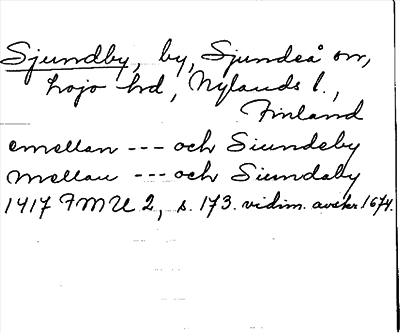 Sjundby, by, Sjundeå sn,
Lojo hd, Nylands l.,
Finland
emellan --- och Siundeby
mellan --- och Siundaby
1417 FMU 2, s. 173. vidim. avskr 1674.